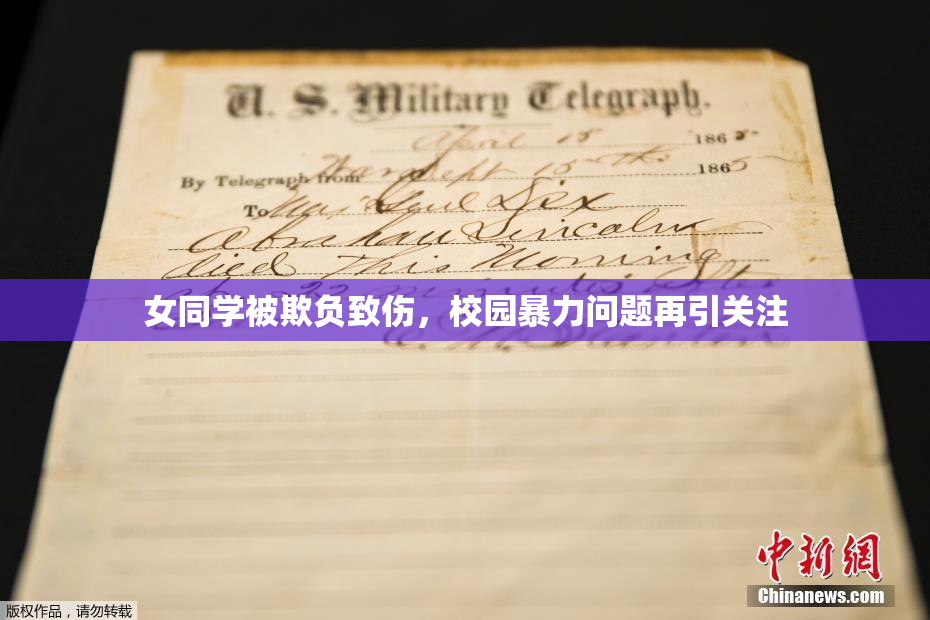 U. S. Military Telegraph.
April 15 1865
By Telegraph from War Dept 15th 1865
To Maj Genl Dix
Abraham Lincoln
died This Morning
at 22 minutes after
女同学被欺负致伤，校园暴力问题再引关注
E. M. Stanton
中新網
Chinanews.com
版权作品，请勿转载